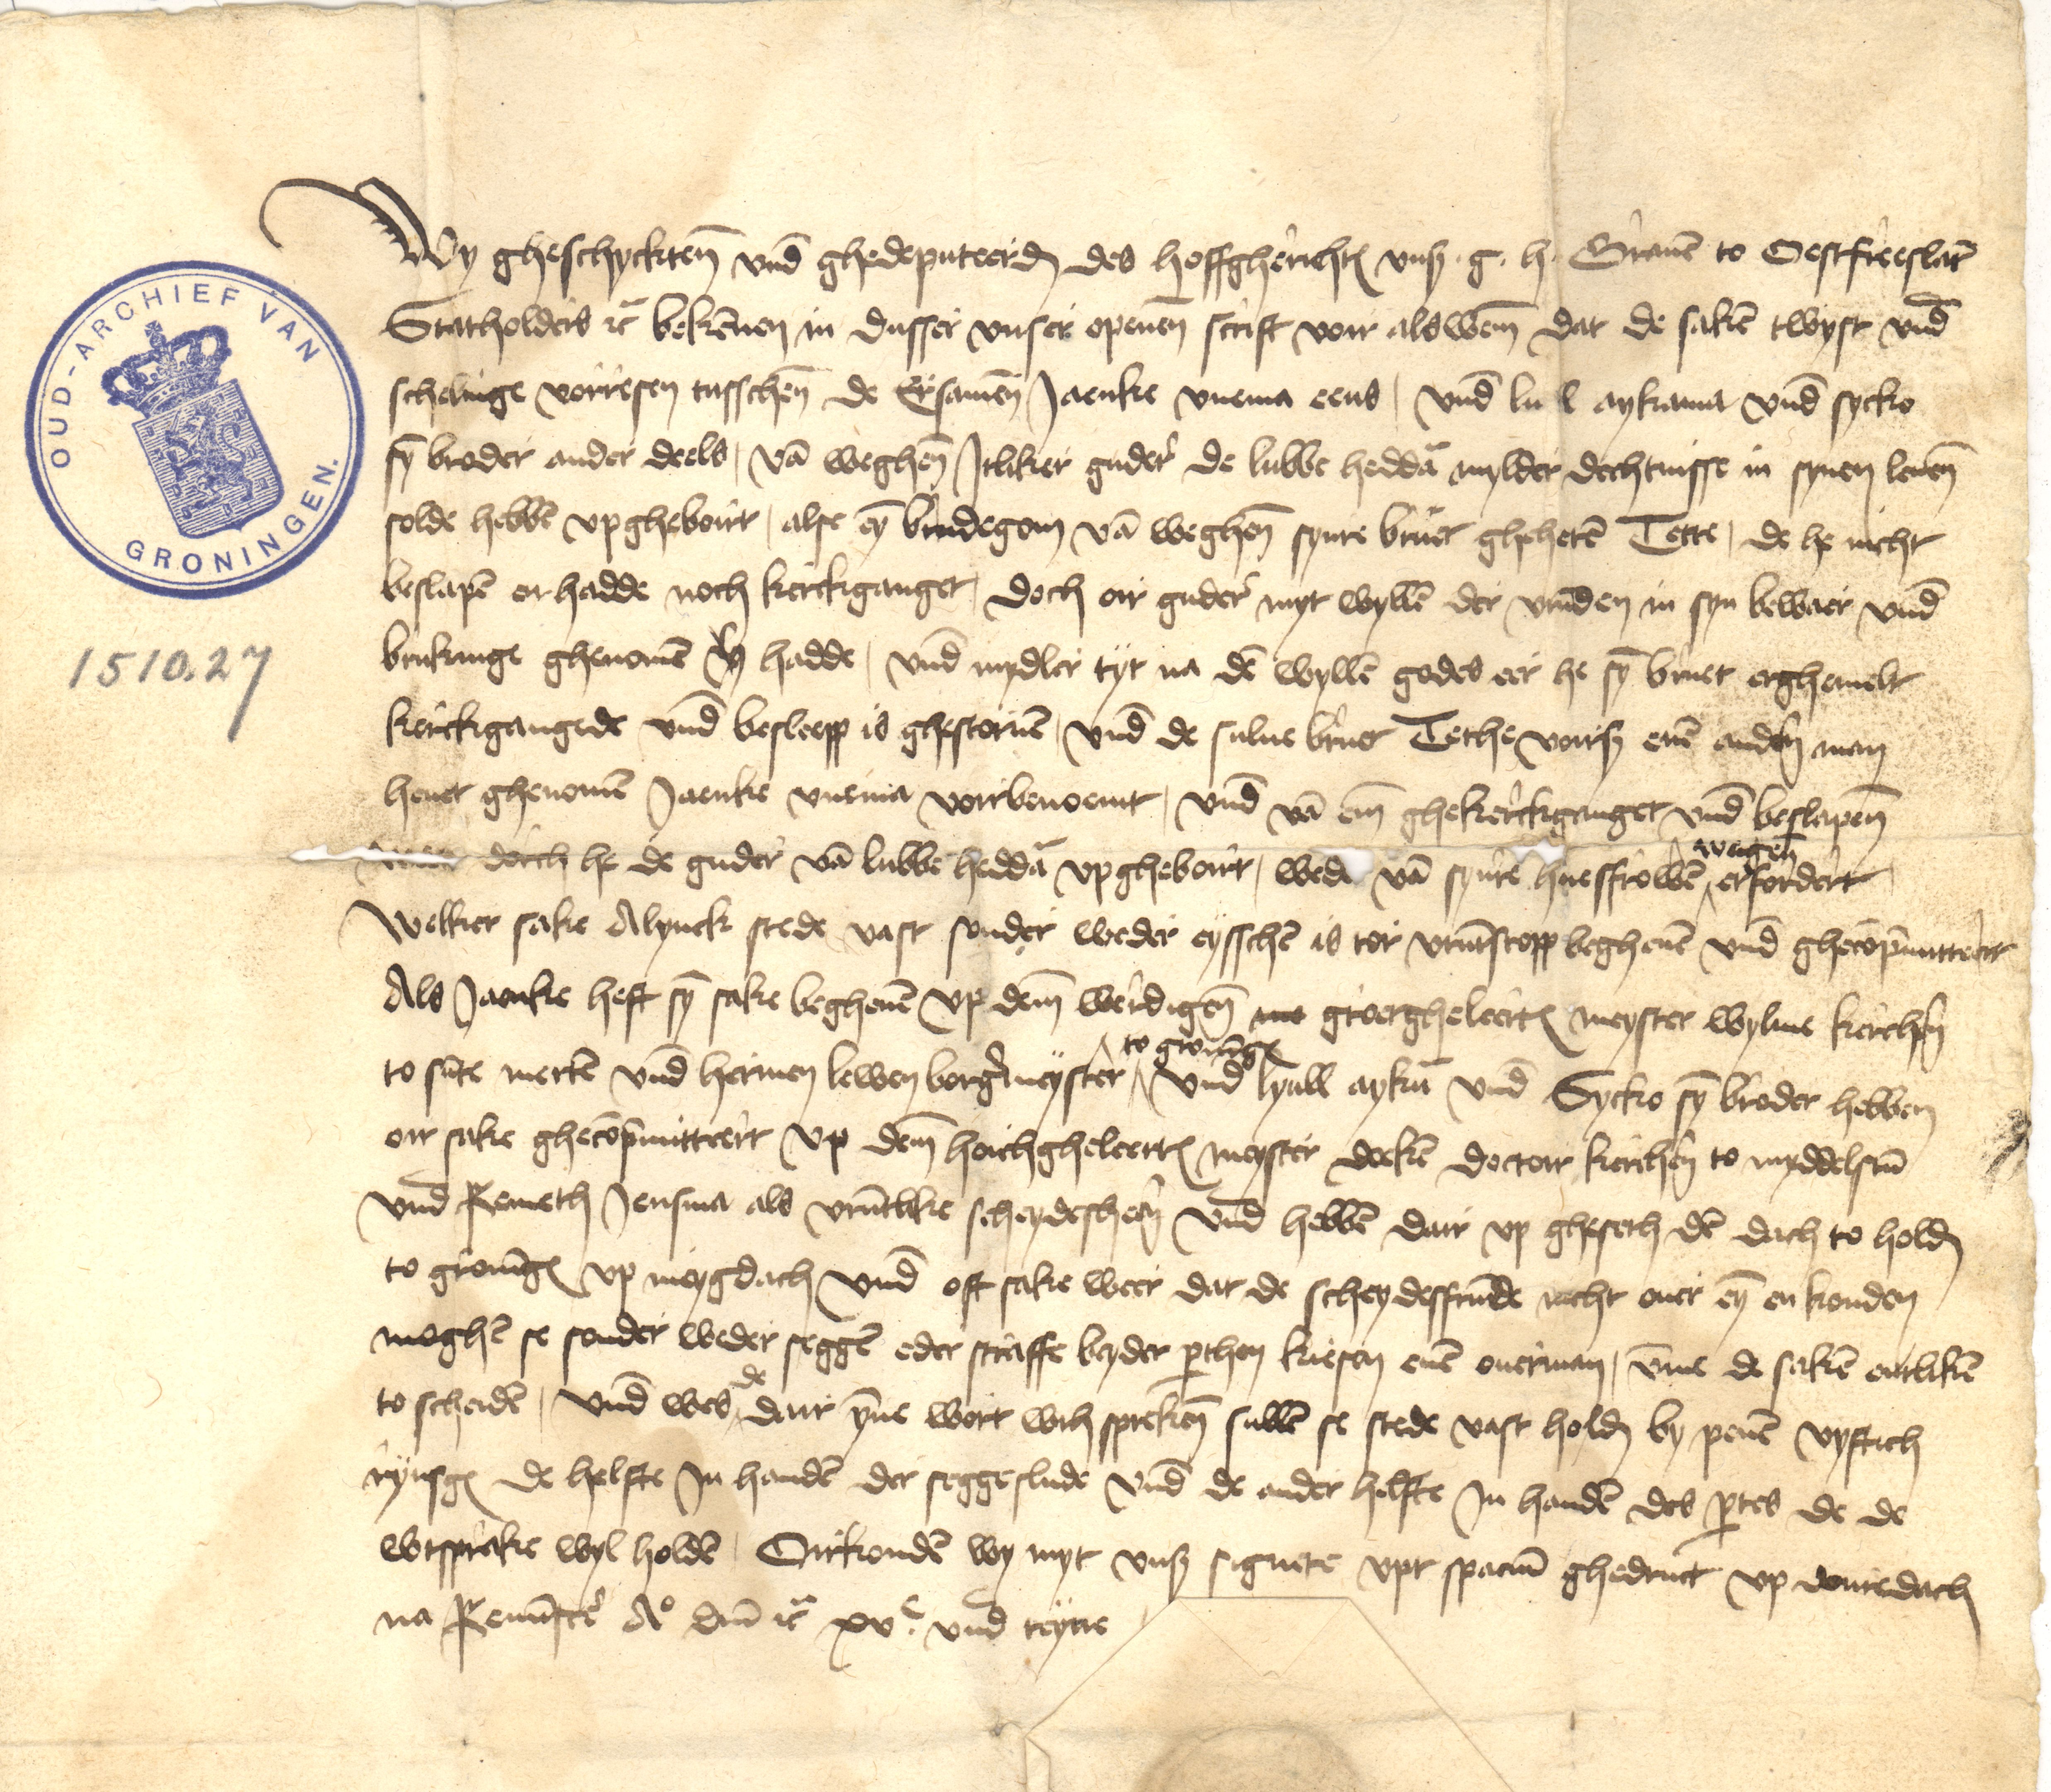 OUD-ARCHIEF VAN GRONINGEN.
1510.27
Wy gheschyckten̄ vnd̄ ghedeputeerdn des hoffgherichtes vnß . g. h. Grauē to Oestfreeslāt
Statholders ꝛc̄ bekēnen in dusser vnser openen̄ scrift voir alswem̄ dat de sakē twyst vnd̄
schelinge vorresen tusschen̄ de Ersamen̄ Jaenke vnema eens / vnd̄ lu l aykama vnd̄ sycko
sȳ broder ander deels / vā weghen̄ Jtliker guder̄ de lubbe heddā mylder dechtnisse in synen leuen̄
solde hebbē vpgheboirt / alse eȳ brudegom vā weghen̄ synre bruet ghehetē Tette / de he nicht
beslapē en hadde noch kerckganget / doch oir guder̄ myt wyllē der vrunden in syn bewaer vnd̄
brukinge ghenomē hadde / vnd̄ mydler tyt na dē wyllē godes eer he sȳ bruet
kerckgangede vnd̄ besleepp is ghestoruē / vnd̄ de sulue bruet Tethe voirß enē andern man
heuet ghenomē Jaenke vnema voirbenoemt / vnd̄ vā em̄ ghekerckganget vnd̄ beslapen̄
dorch he de guder vā lubbe heddā vpgheboirt / wede vā synre huesfrowē wegen̄ erfordert
Welker sake Alynck stede vast sunder weder eysschē is tor vrūtscopp begheuē vnd̄ ghecōpmitteert
Als Jaenke heft sȳ sake begheuē vp dem̄ werdigen̄ groetgheleertn meyster wylme kerchern
to sūte mertē vnd̄ hermen lewen borgermeyster to gronīgn / vnd̄ lyall aykm̄ vnd̄ Sycko sȳ broder hebben
oir sake ghecōpmitteert vp dem̄ hoichgheleertn meyster dokē doctoir kerchern to myddelstū
vnd̄ Remeth Jensma als vrūtlike scheydesheern vnd̄ hebbē dair vp gheseth dē dach to holdn
to gronīgn vp meygdach vnd̄ oft sake weer dat de scheydesfrūde nicht ouer eȳ en konden
moghē se sonder weder seggē eder straffe beyder pthen kiesen enē ouerman / vm̄e de sakē entlikē
to scheidē / vnd̄ wes de dair ȳne wort wth spreken̄ sullē se stede vast holdn by penē vyftich
rynsgn de helfte Jn handē der seggeslude vnd̄ de ander helfte Jn handē des ptes de de
wtsprake wyl holdē / Oirkondē wy myt vnß signete vpt spaciū ghedruct vp donredach
na Remīscē Aº dnī ꝛc̄ xvᶜ. vnd̄ teyne